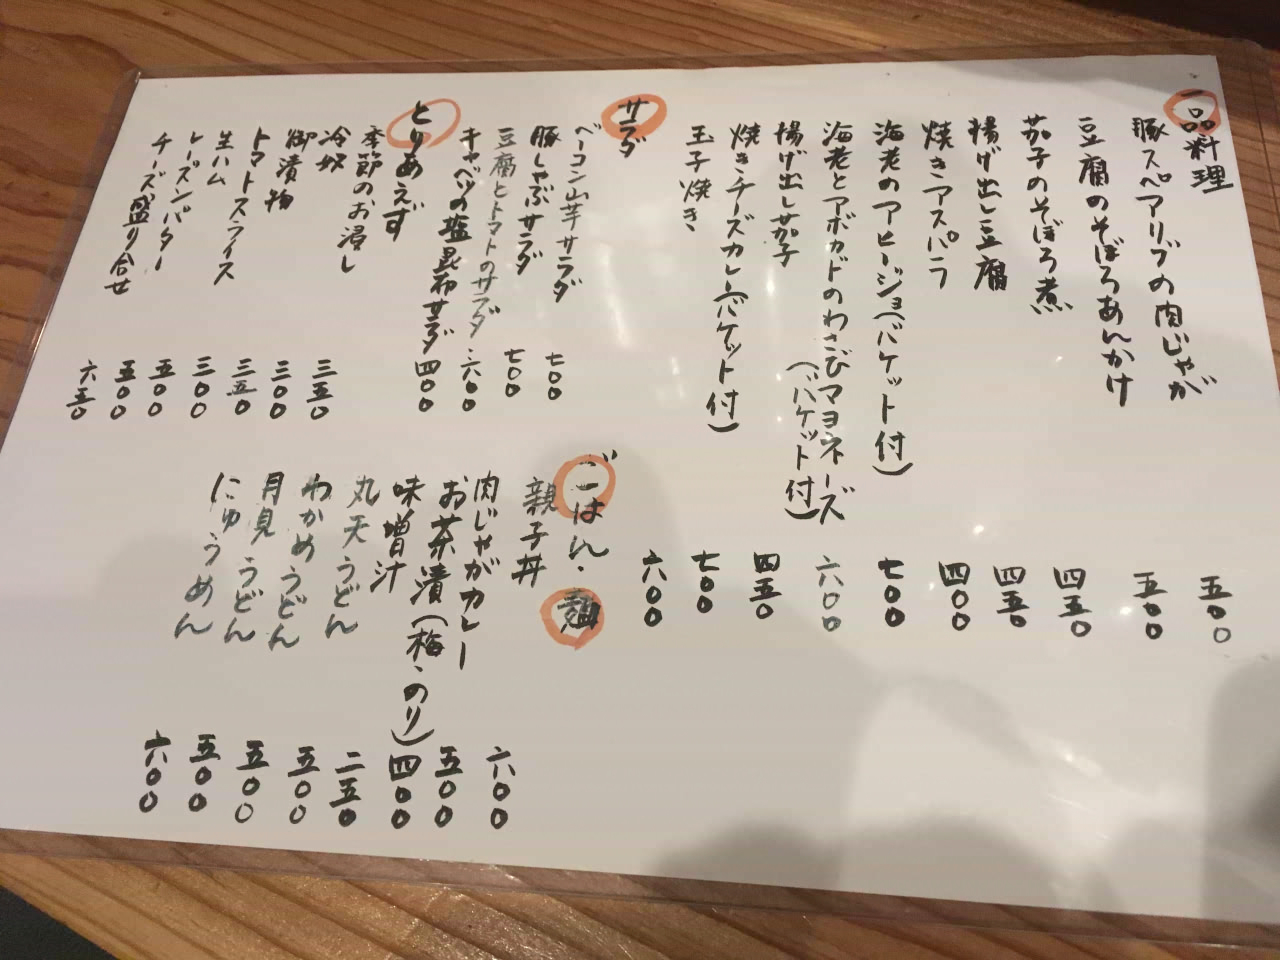 一品料理
豚スペアリブの肉じゃが 五〇〇
豆腐のそぼろあんかけ 五〇〇
茄子のそぼろ煮 四五〇
揚げ出し豆腐 四五〇
焼きアスパラ 四〇〇
海老のアヒージョ(バケット付) 七〇〇
海老とアボカドのわさびマヨネーズ
(バケット付) 六〇〇
揚げ出し茄子 四五〇
焼きチーズカレー(バケット付) 七〇〇
玉子焼き 六〇〇
サラダ
ベーコン山芋サラダ 七〇〇
豚しゃぶサラダ 七〇〇
豆腐とトマトのサラダ 六〇〇
キャベツの塩昆布サラダ 四〇〇
とりあえず
季節のお浸し 三五〇
冷奴 三〇〇
御漬物 三五〇
トマトスライス 三〇〇
生ハム 五〇〇
レーズンバター 五〇〇
チーズ盛り合せ 六五〇
ごはん・麺
親子丼 六〇〇
肉じゃがカレー 五〇〇
お茶漬(梅・のり) 四〇〇
味増汁 二五〇
丸天うどん 五〇〇
わかめうどん 五〇〇
月見うどん 五〇〇
にゅうめん 六〇〇